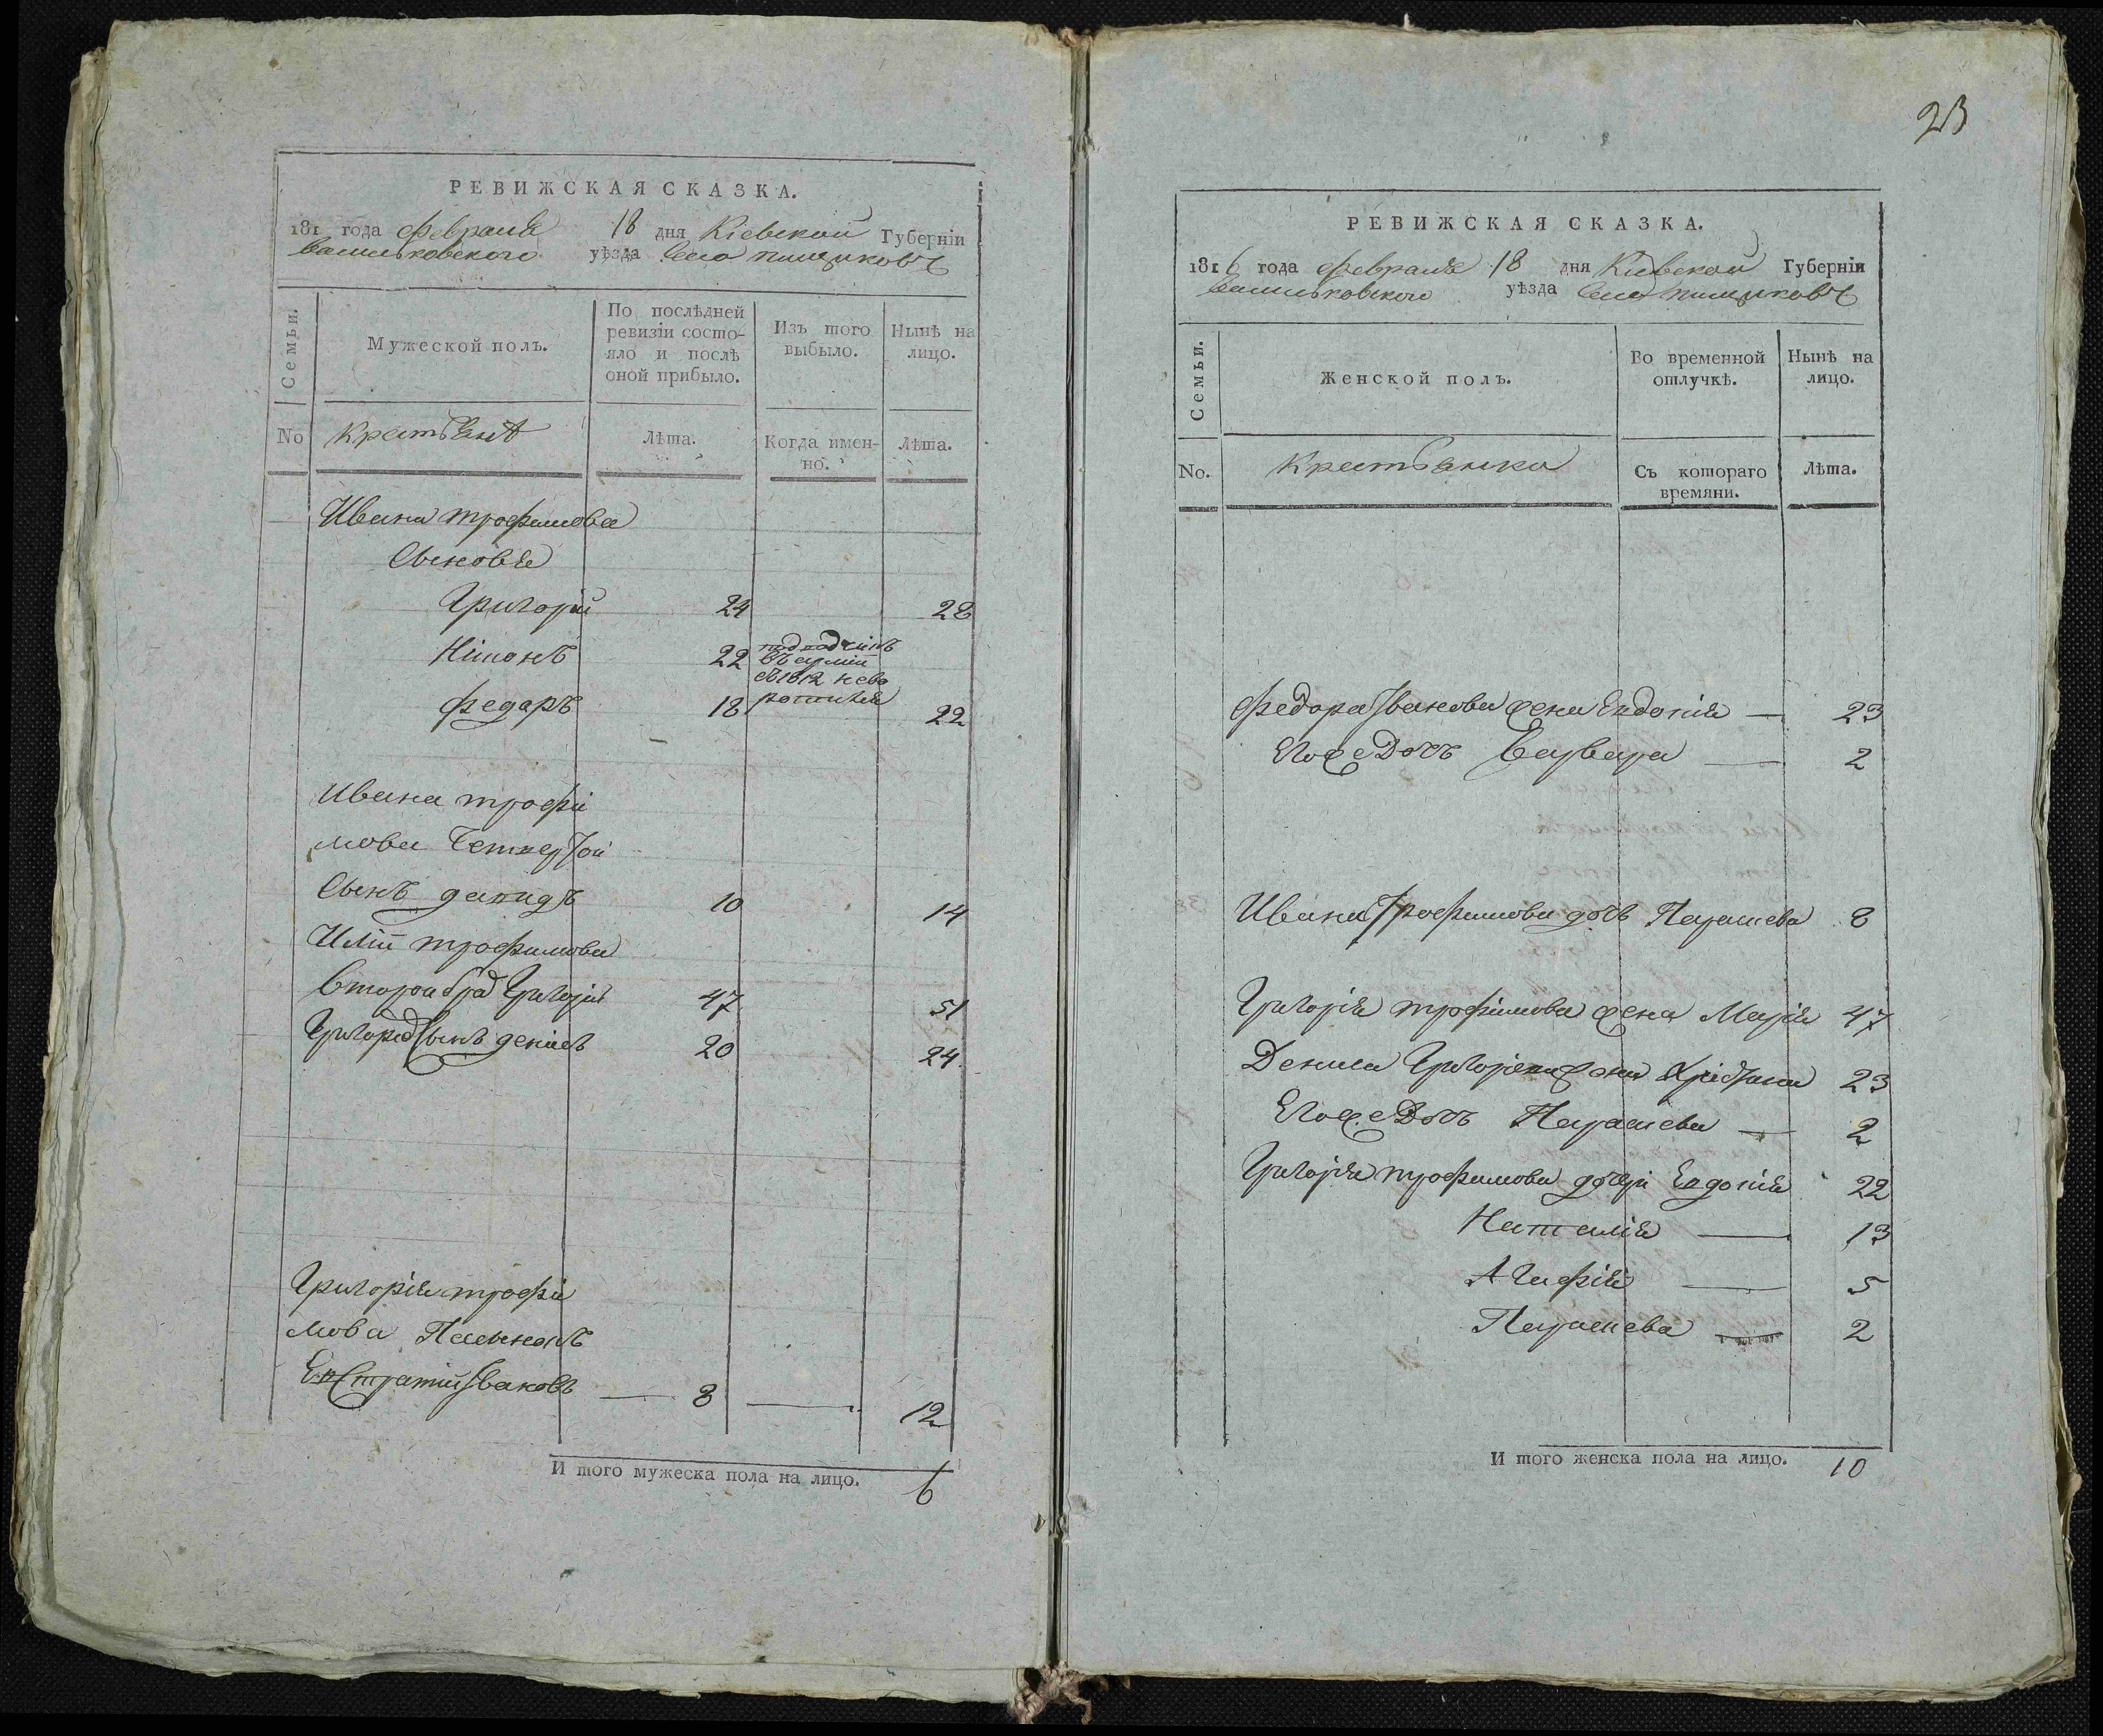 РЕВИЖСКАЯ СКАЗКА.
181 года февраля 18 дня Кіевской Губерніи
васильковского уѣзда Села пищиковъ
Семьи.
Мужеской полъ.
По послѣдней ревизіи состояло и послѣ оной прибыло.
Изъ того выбыло.
Нынѣ на лицо.
No
крестьянѣ
Лѣта.
Когда имен-
но.
Лѣта.
Ивана трофимова
Сыновья
Григорій 24 28
22
въ 1812
федаръ 18 22
Ивана трофи
мова Четвертой
Сынъ давидъ 10 14
Илій трофимова
второй брад Григорій 47 51
Сынъ денисъ 20 24
Григорія трофи
мова Пасынокъ
Евстратий Иваковъ — 8 — 12
И того мужеска пола на лицо. 6
23
РЕВИЖСКАЯ СКАЗКА.
1816 года февраля 18 дня Кіевской Губерніи
васильковского уѣзда Села пищиковъ
Семьи.
Женской полъ.
Во временной отлучкѣ.
Нынѣ на лицо.
No.
крестьянки
Съ котораго
времяни.
Лѣта.
федора Иванова жена Евдокія — 23
Егоже Дочь Варвара — 2
Ивана Трофимова дочь Параскева 8
Григорія трофимова жена Марія 47
Дениса жена 23
Егоже Дочь Параскева — 2
Григорія трофимова дочери Евдокія 22
Наталія — 13
Агафія — 5
Параскева — 2
И того женска пола на лицо. 10